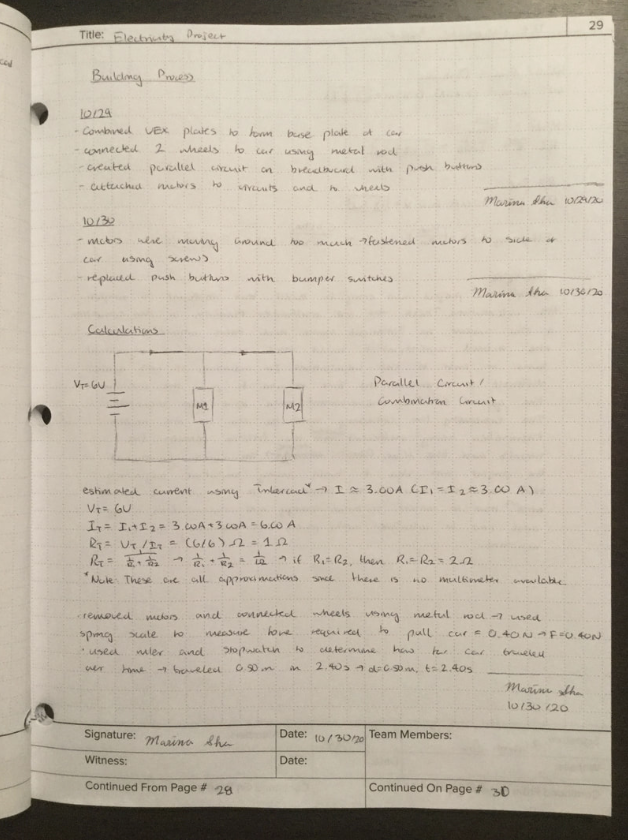 29
Title: Electricity Project
Building Process
10/29
- Combined VEX plates to form base plate of car
- connected 2 wheels to car using metal rod
- created parallel circuit on breadboard with push buttons
- attached motors to circuits and to wheels
Marina Sha 10/29/20
10/30
- motors were moving around too much → fastened motors to side of
car using screws
- replaced push buttons with bumper switches
Marina Sha 10/30/20
Calculations
VT=6V
M1
M2
Parallel Circuit/
Combination Circuit
estimated current using Tinkercad* → I ≈ 3.00A (I1 = I2 ≈ 3.00 A)
VT = 6V
IT = I1 + I2 = 3.00A + 3.00A = 6.00 A
RT = VT / IT = (6/6) Ω = 1 Ω
RT = 1/(1/R1 + 1/R2) → 1/R1 + 1/R2 = 1/1Ω → if R1=R2, then R1=R2 = 2Ω
*Note: These are all approximations since there is no multimeter available.
· removed motors and connected wheels using metal rod → used
spring scale to measure force required to pull car = 0.40N → F=0.40N
· used ruler and stopwatch to determine how far car traveled
over time → traveled 0.50m in 2.40s → d=0.50m, t=2.40s
Marina Sha
10/30/20
Signature: Marina Sha
Date: 10/30/20
Team Members:
Witness:
Date:
Continued From Page # 28
Continued On Page # 30